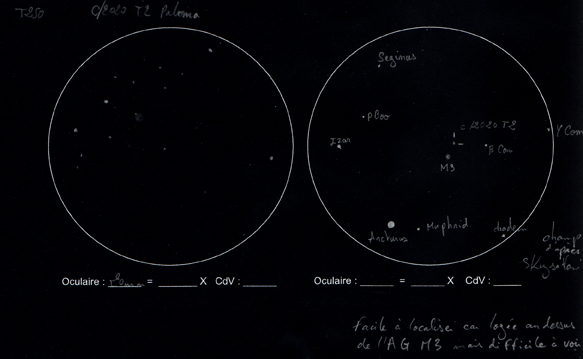 T250 C/2020 T2 Paloma
Seginus
ρ Boo
C/2020 T2
γ Com
Izar
β Com
M3
Arcturus
Muphrid
diadem
champ
d'après
Oculaire : = X CdV :
Oculaire : = X CdV :
Facile à localiser car logée au dessus
de l'AG M3 mais difficile à voir